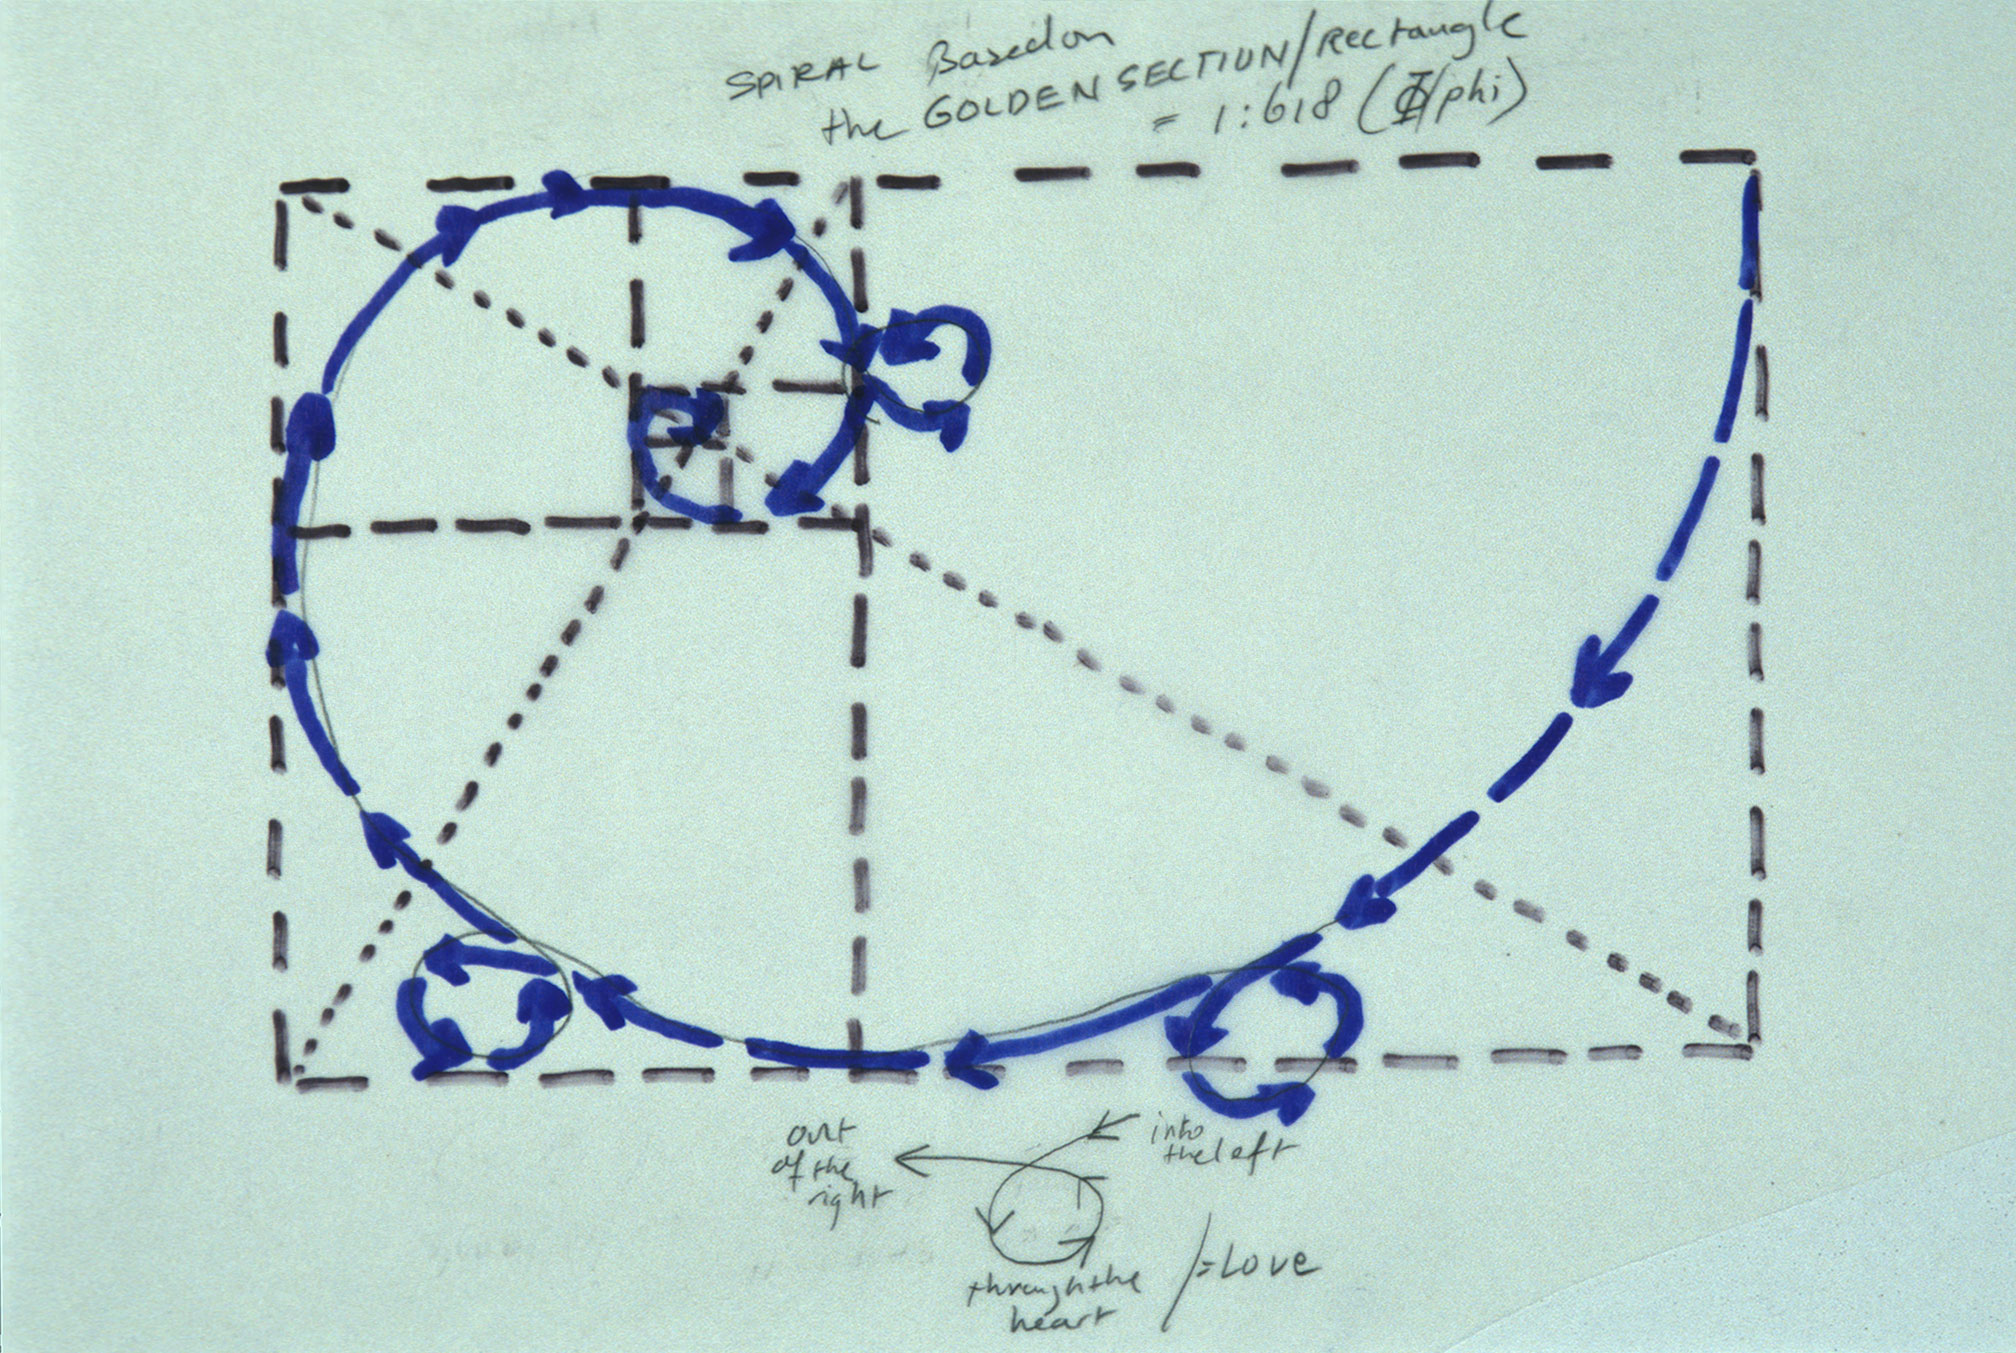 SPIRAL Based on
the GOLDEN SECTION/Rectangle
= 1:618 (Φ/phi)
out
of the
right
into
the left
through the
heart
/=LOVE